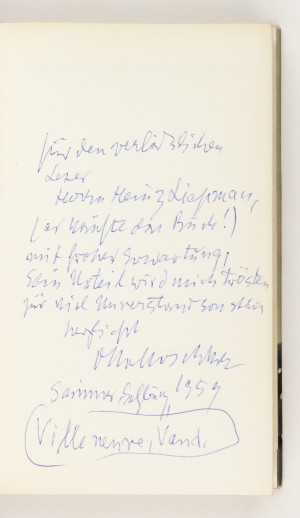 für den verlässlichen
Leser
Herrn Heinz Liepman,
(er kaufte das Buch!)
mit großer Erwartung,
sein Urteil wird mich trösten
für viel Unverstand von
herzlichst
Sommer Salzburg, 1959
Villeneuve, Vaud.